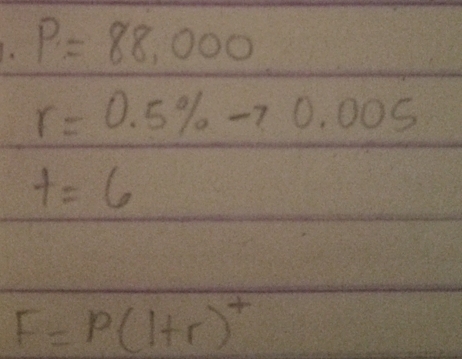 1. P = 88,000
r = 0.5% → 0.005
t = 6
F = P(1+r)^t